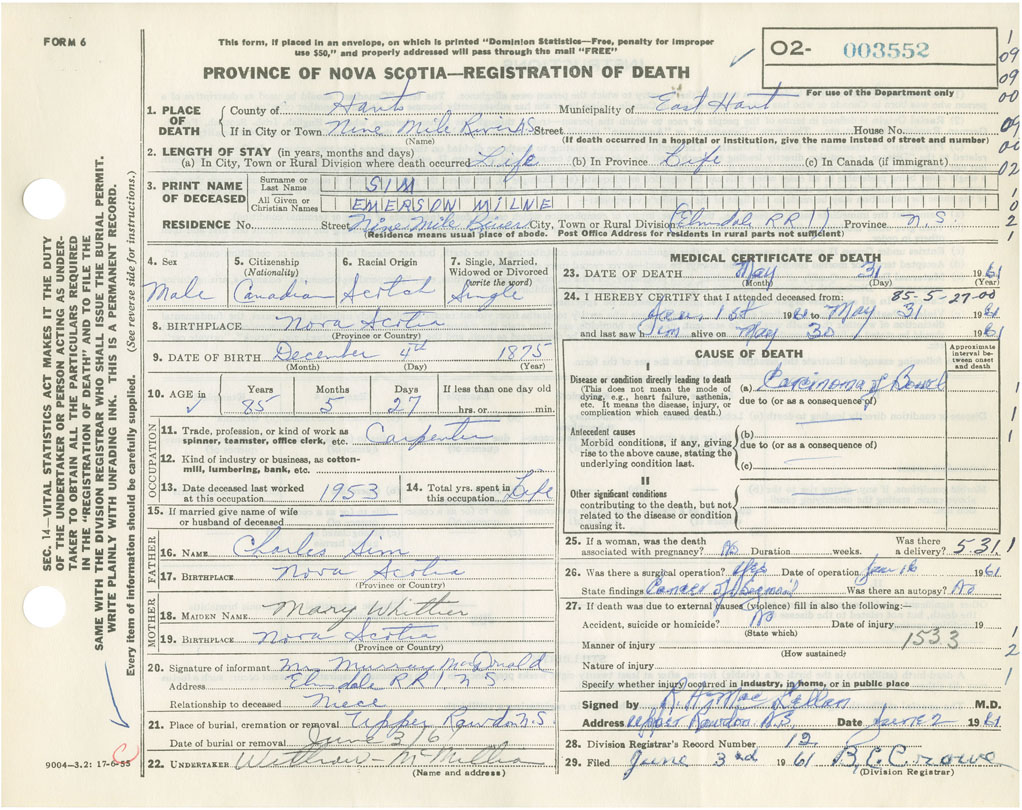 FORM 6
This form, if placed in an envelope, on which is printed "Dominion Statistics—Free, penalty for improper
use $50," and properly addressed will pass through the mail "FREE"
O2- 003552
For use of the Department only
PROVINCE OF NOVA SCOTIA—REGISTRATION OF DEATH
SEC. 14—VITAL STATISTICS ACT MAKES IT THE DUTY
OF THE UNDERTAKER OR PERSON ACTING AS UNDER-
TAKER TO OBTAIN ALL THE PARTICULARS REQUIRED
IN THE "REGISTRATION OF DEATH" AND TO FILE THE
SAME WITH THE DIVISION REGISTRAR WHO SHALL ISSUE THE BURIAL PERMIT.
WRITE PLAINLY WITH UNFADING INK. THIS IS A PERMANENT RECORD.
Every item of information should be carefully supplied. (See reverse side for instructions.)
1. PLACE OF DEATH
County of Hants Municipality of East Hant
If in City or Town Nine Mile River N.S. Street House No.
(Name) (If death occurred in a hospital or institution, give the name instead of street and number)
2. LENGTH OF STAY (in years, months and days)
(a) In City, Town or Rural Division where death occurred Life (b) In Province Life (c) In Canada (if immigrant)
3. PRINT NAME OF DECEASED
Surname or Last Name SIM
All Given or Christian Names EMERSON MILNE
RESIDENCE No. Street Nine Mile River City, Town or Rural Division (Elmsdale RR 1) Province N.S.
(Residence means usual place of abode. Post Office Address for residents in rural parts not sufficient)
4. Sex 5. Citizenship 6. Racial Origin 7. Single, Married,
(Nationality) Widowed or Divorced
(write the word)
Male Canadian Scotch Single
8. BIRTHPLACE Nova Scotia
(Province or Country)
9. DATE OF BIRTH December 4th 1875
(Month) (Day) (Year)
10. AGE in Years Months Days If less than one day old
85 5 27 hrs. or min.
OCCUPATION
11. Trade, profession, or kind of work as
spinner, teamster, office clerk, etc. Carpenter
12. Kind of industry or business, as cotton-
mill, lumbering, bank, etc.
13. Date deceased last worked
at this occupation 1953
14. Total yrs. spent in
this occupation Life
15. If married give name of wife
or husband of deceased
FATHER
16. NAME Charles Sim
17. BIRTHPLACE Nova Scotia
(Province or Country)
MOTHER
18. MAIDEN NAME Mary Whittier
19. BIRTHPLACE Nova Scotia
(Province or Country)
20. Signature of informant Mrs Murray McDonald
Address Elmsdale RR 1 N S
Relationship to deceased Niece
21. Place of burial, cremation or removal Upper Rawdon N.S
Date of burial or removal June 3/61
22. UNDERTAKER Withrow - McMillan
(Name and address)
9004—3.2: 17-6-55
MEDICAL CERTIFICATE OF DEATH
23. DATE OF DEATH May 31 1961
(Month) (Day) (Year)
24. I HEREBY CERTIFY that I attended deceased from: 85-5-27-00
1961 to May 31 1961
and last saw him alive on May 30 1961
CAUSE OF DEATH
Approximate interval between onset and death
I
Disease or condition directly leading to death
(This does not mean the mode of
dying, e.g., heart failure, asthenia,
etc. It means the disease, injury, or
complication which caused death.)
(a) Carcinoma of Bowel
due to (or as a consequence of)
Antecedent causes
Morbid conditions, if any, giving
rise to the above cause, stating the
underlying condition last.
(b)
due to (or as a consequence of)
(c)
II
Other significant conditions
contributing to the death, but not
related to the disease or condition
causing it.
25. If a woman, was the death
associated with pregnancy? No Duration weeks. Was there
a delivery? 5.31
26. Was there a surgical operation? Yes Date of operation Jan 16 1961
State findings Cancer of Was there an autopsy? No
27. If death was due to external causes (violence) fill in also the following:—
Accident, suicide or homicide? No Date of injury 19
(State which)
Manner of injury 1533
(How sustained)
Nature of injury
Specify whether injury occurred in industry, in home, or in public place
Signed by R. A. MacLellan M.D.
Address Upper Rawdon N.S Date June 2 1961
28. Division Registrar's Record Number 12
29. Filed June 3rd 1961 B.C. Crowe
(Division Registrar)